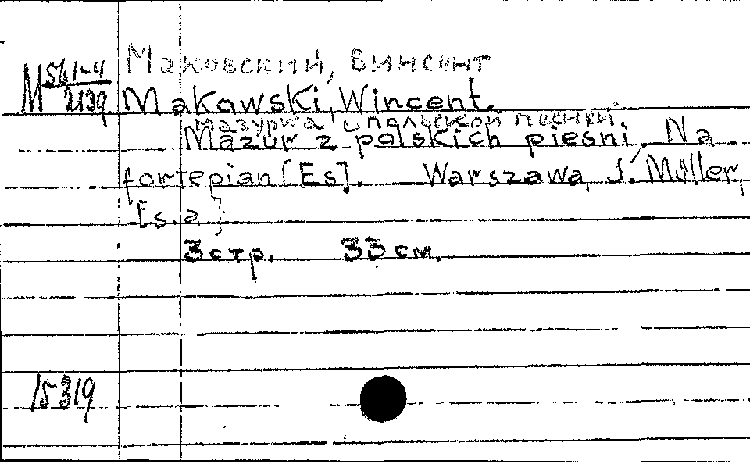 Маковский, Винсент
M 561-4/2139
Makowski, Wincent.
Мазурка с польской песни.
Mazur z polskich pieśni. Na
fortepian [Es]. Warszawa, J. Müller,
[s.a.]
3 стр. 33 см.
15319